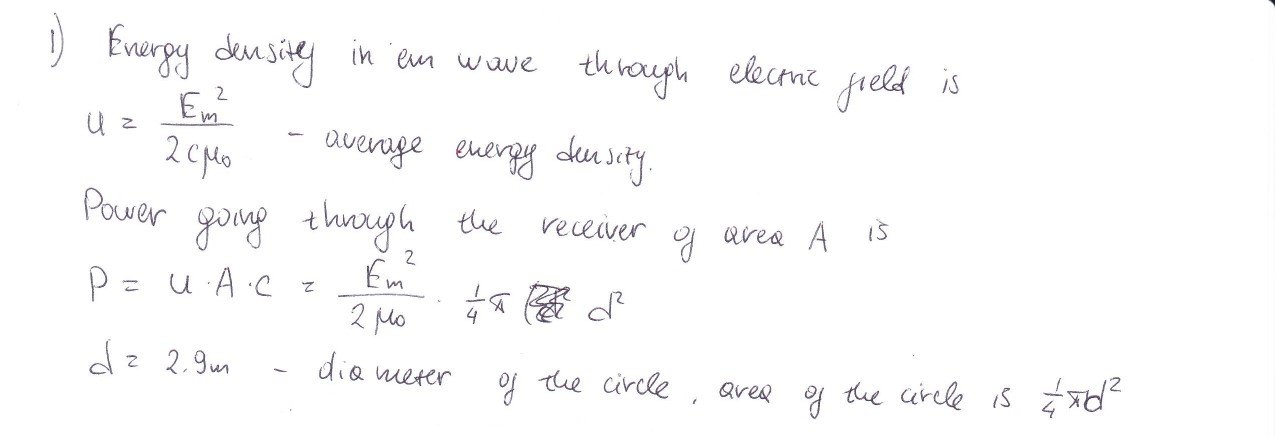 1) Energy density in em wave through electric field is
u = Em² / 2cμ₀ - average energy density.
Power going through the receiver of area A is
P = u·A·c = Em² / 2μ₀ · 1/4 π d²
d = 2.9m - diameter of the circle, area of the circle is 1/4 πd²